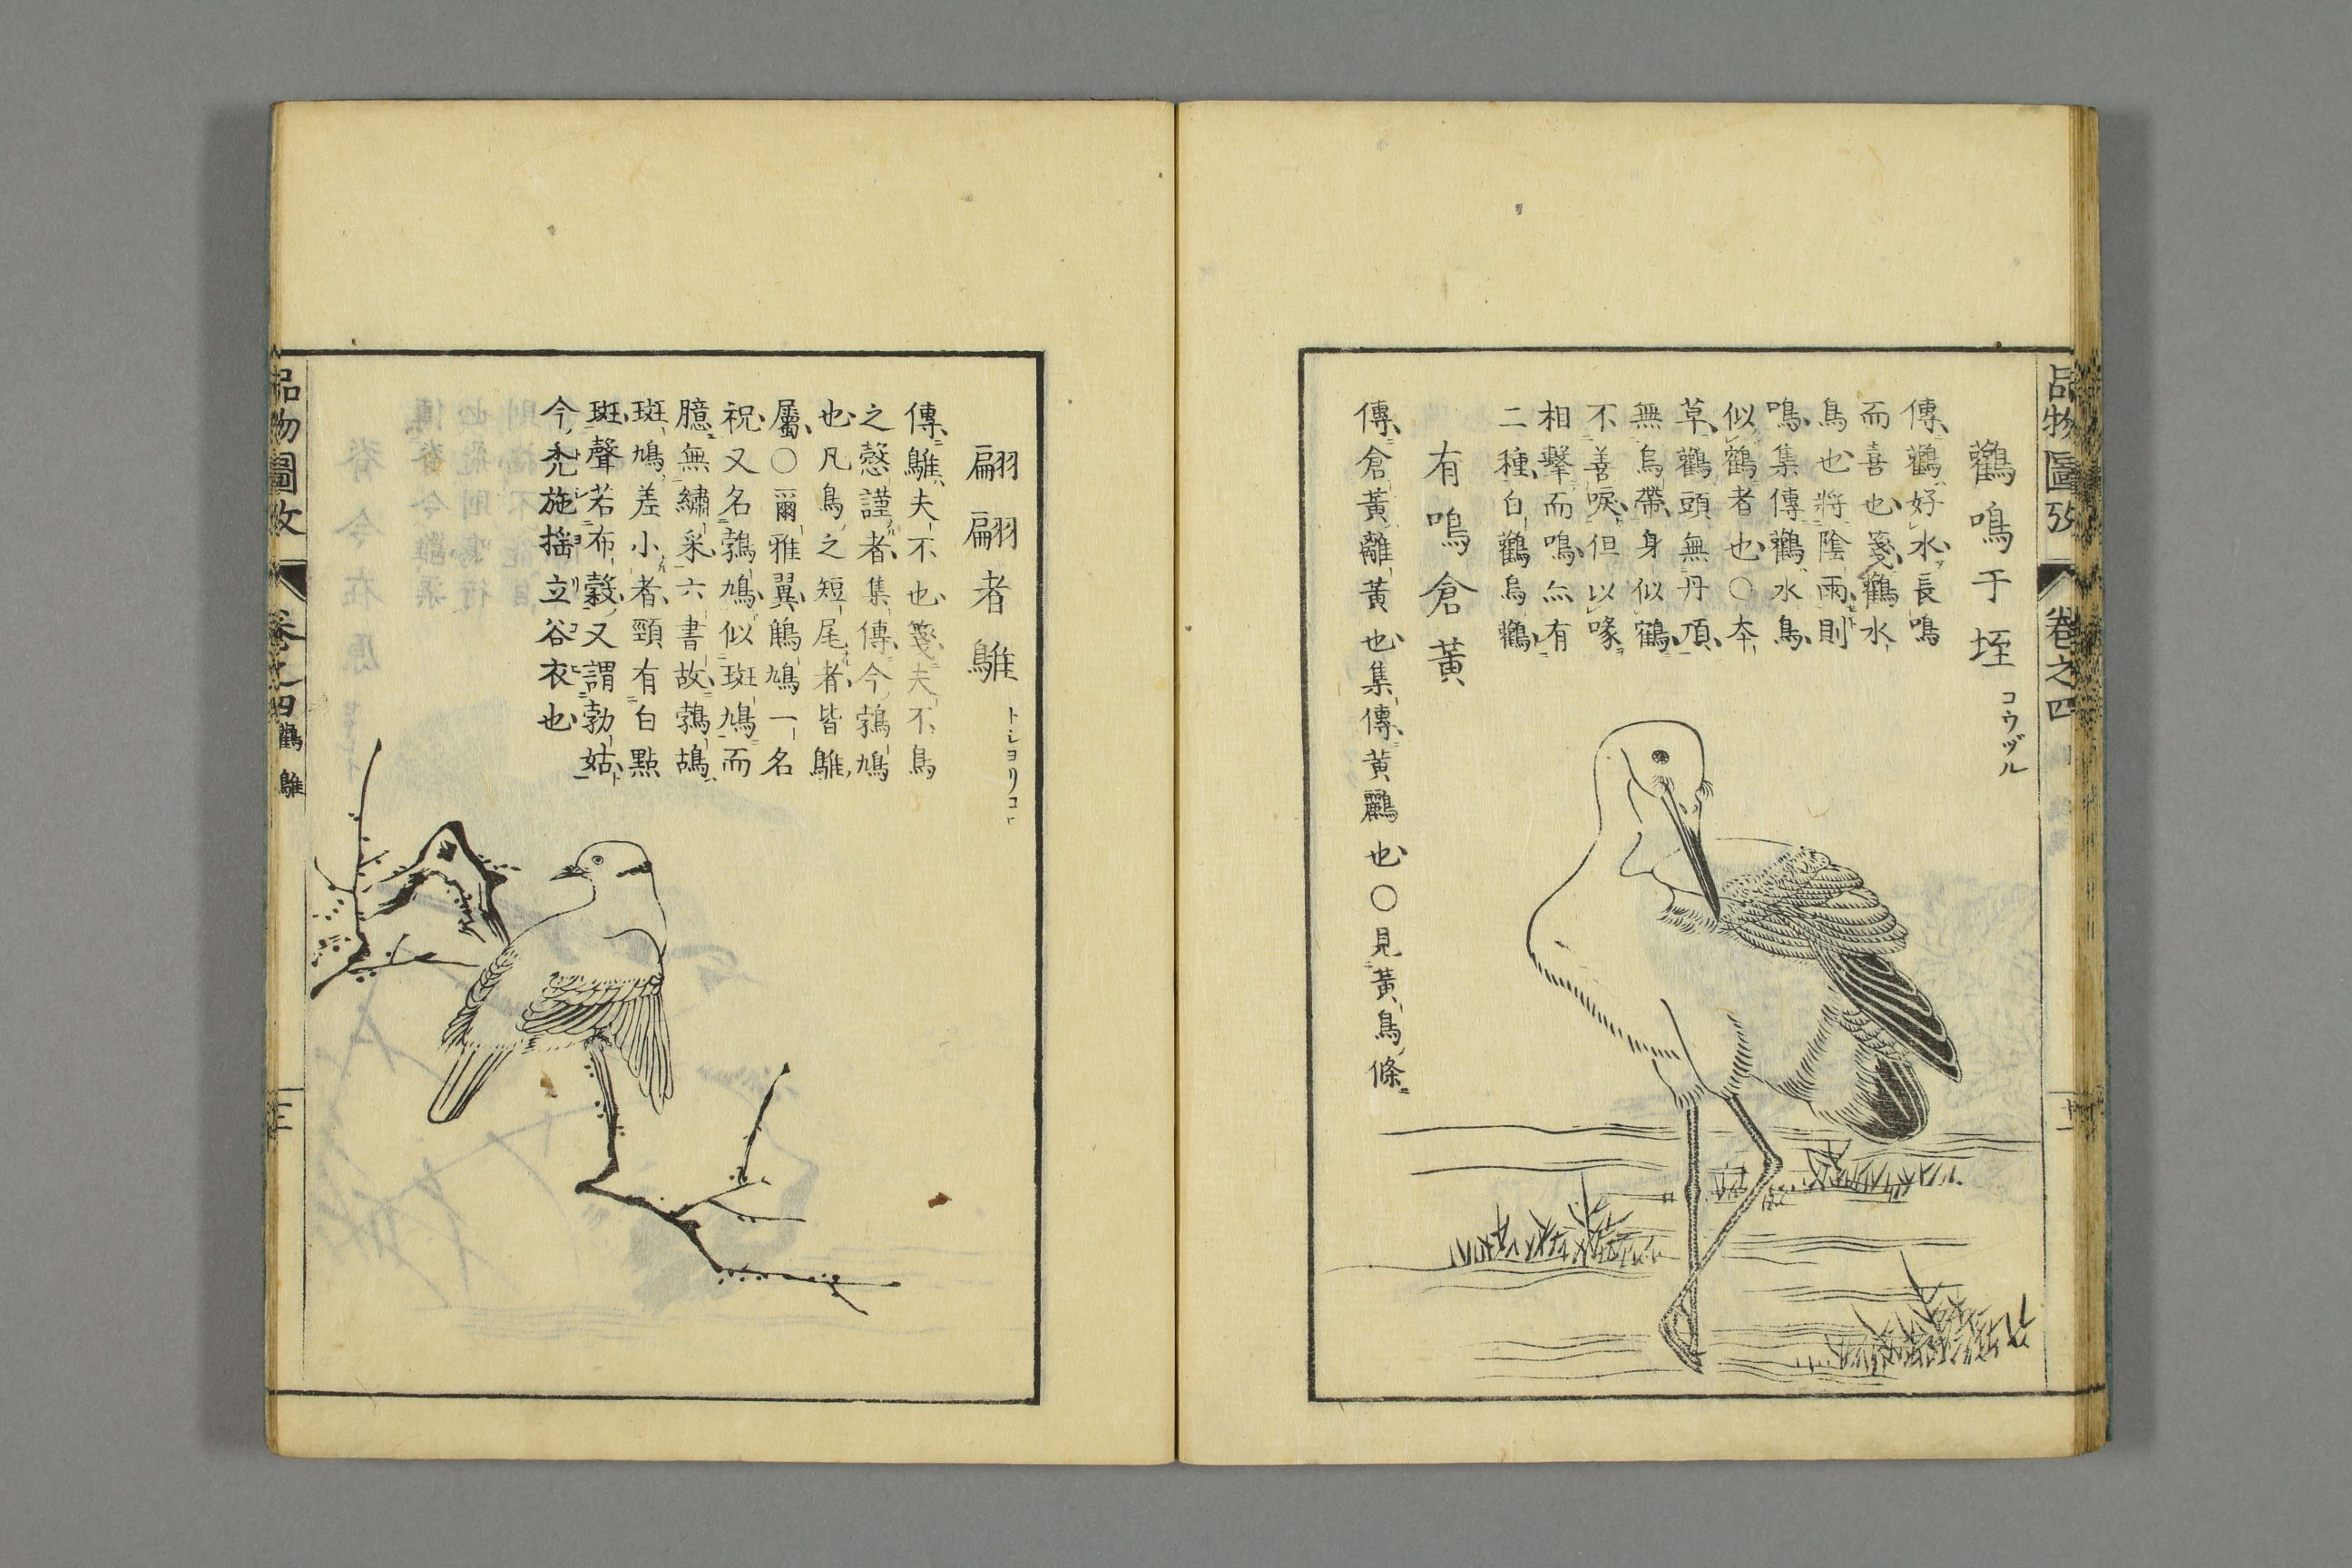 品物圖攷
卷之四
鸛鳴于垤 コウヅル
傳鸛好水長鳴
而喜也箋鸛水
鳥也將陰雨則
鳴集傳鸛水鳥
似鶴者也○本
草鸛頭無丹項
無烏帶身似鶴
不善唳但以喙
相擊而鳴亦有
二種白鸛烏鸛
有鳴倉黃
傳倉黃離黃也集傳黃鸝也○見黃鳥條
翩翩者鵻 トシヨリコヒ
傳鵻夫不也箋夫不鳥
之愨謹者集傳今鵓鳩
也凡鳥之短尾者皆鵻
屬○爾雅翼鵤鳩一名
祝又名鵓鳩似斑鳩而
臆無繡采六書故鵓鴣
斑鳩差小者頸有白點
斑聲若布穀又謂勃姑
今禿施搖立谷衣也
品物圖攷
卷之四
鸛 鵻